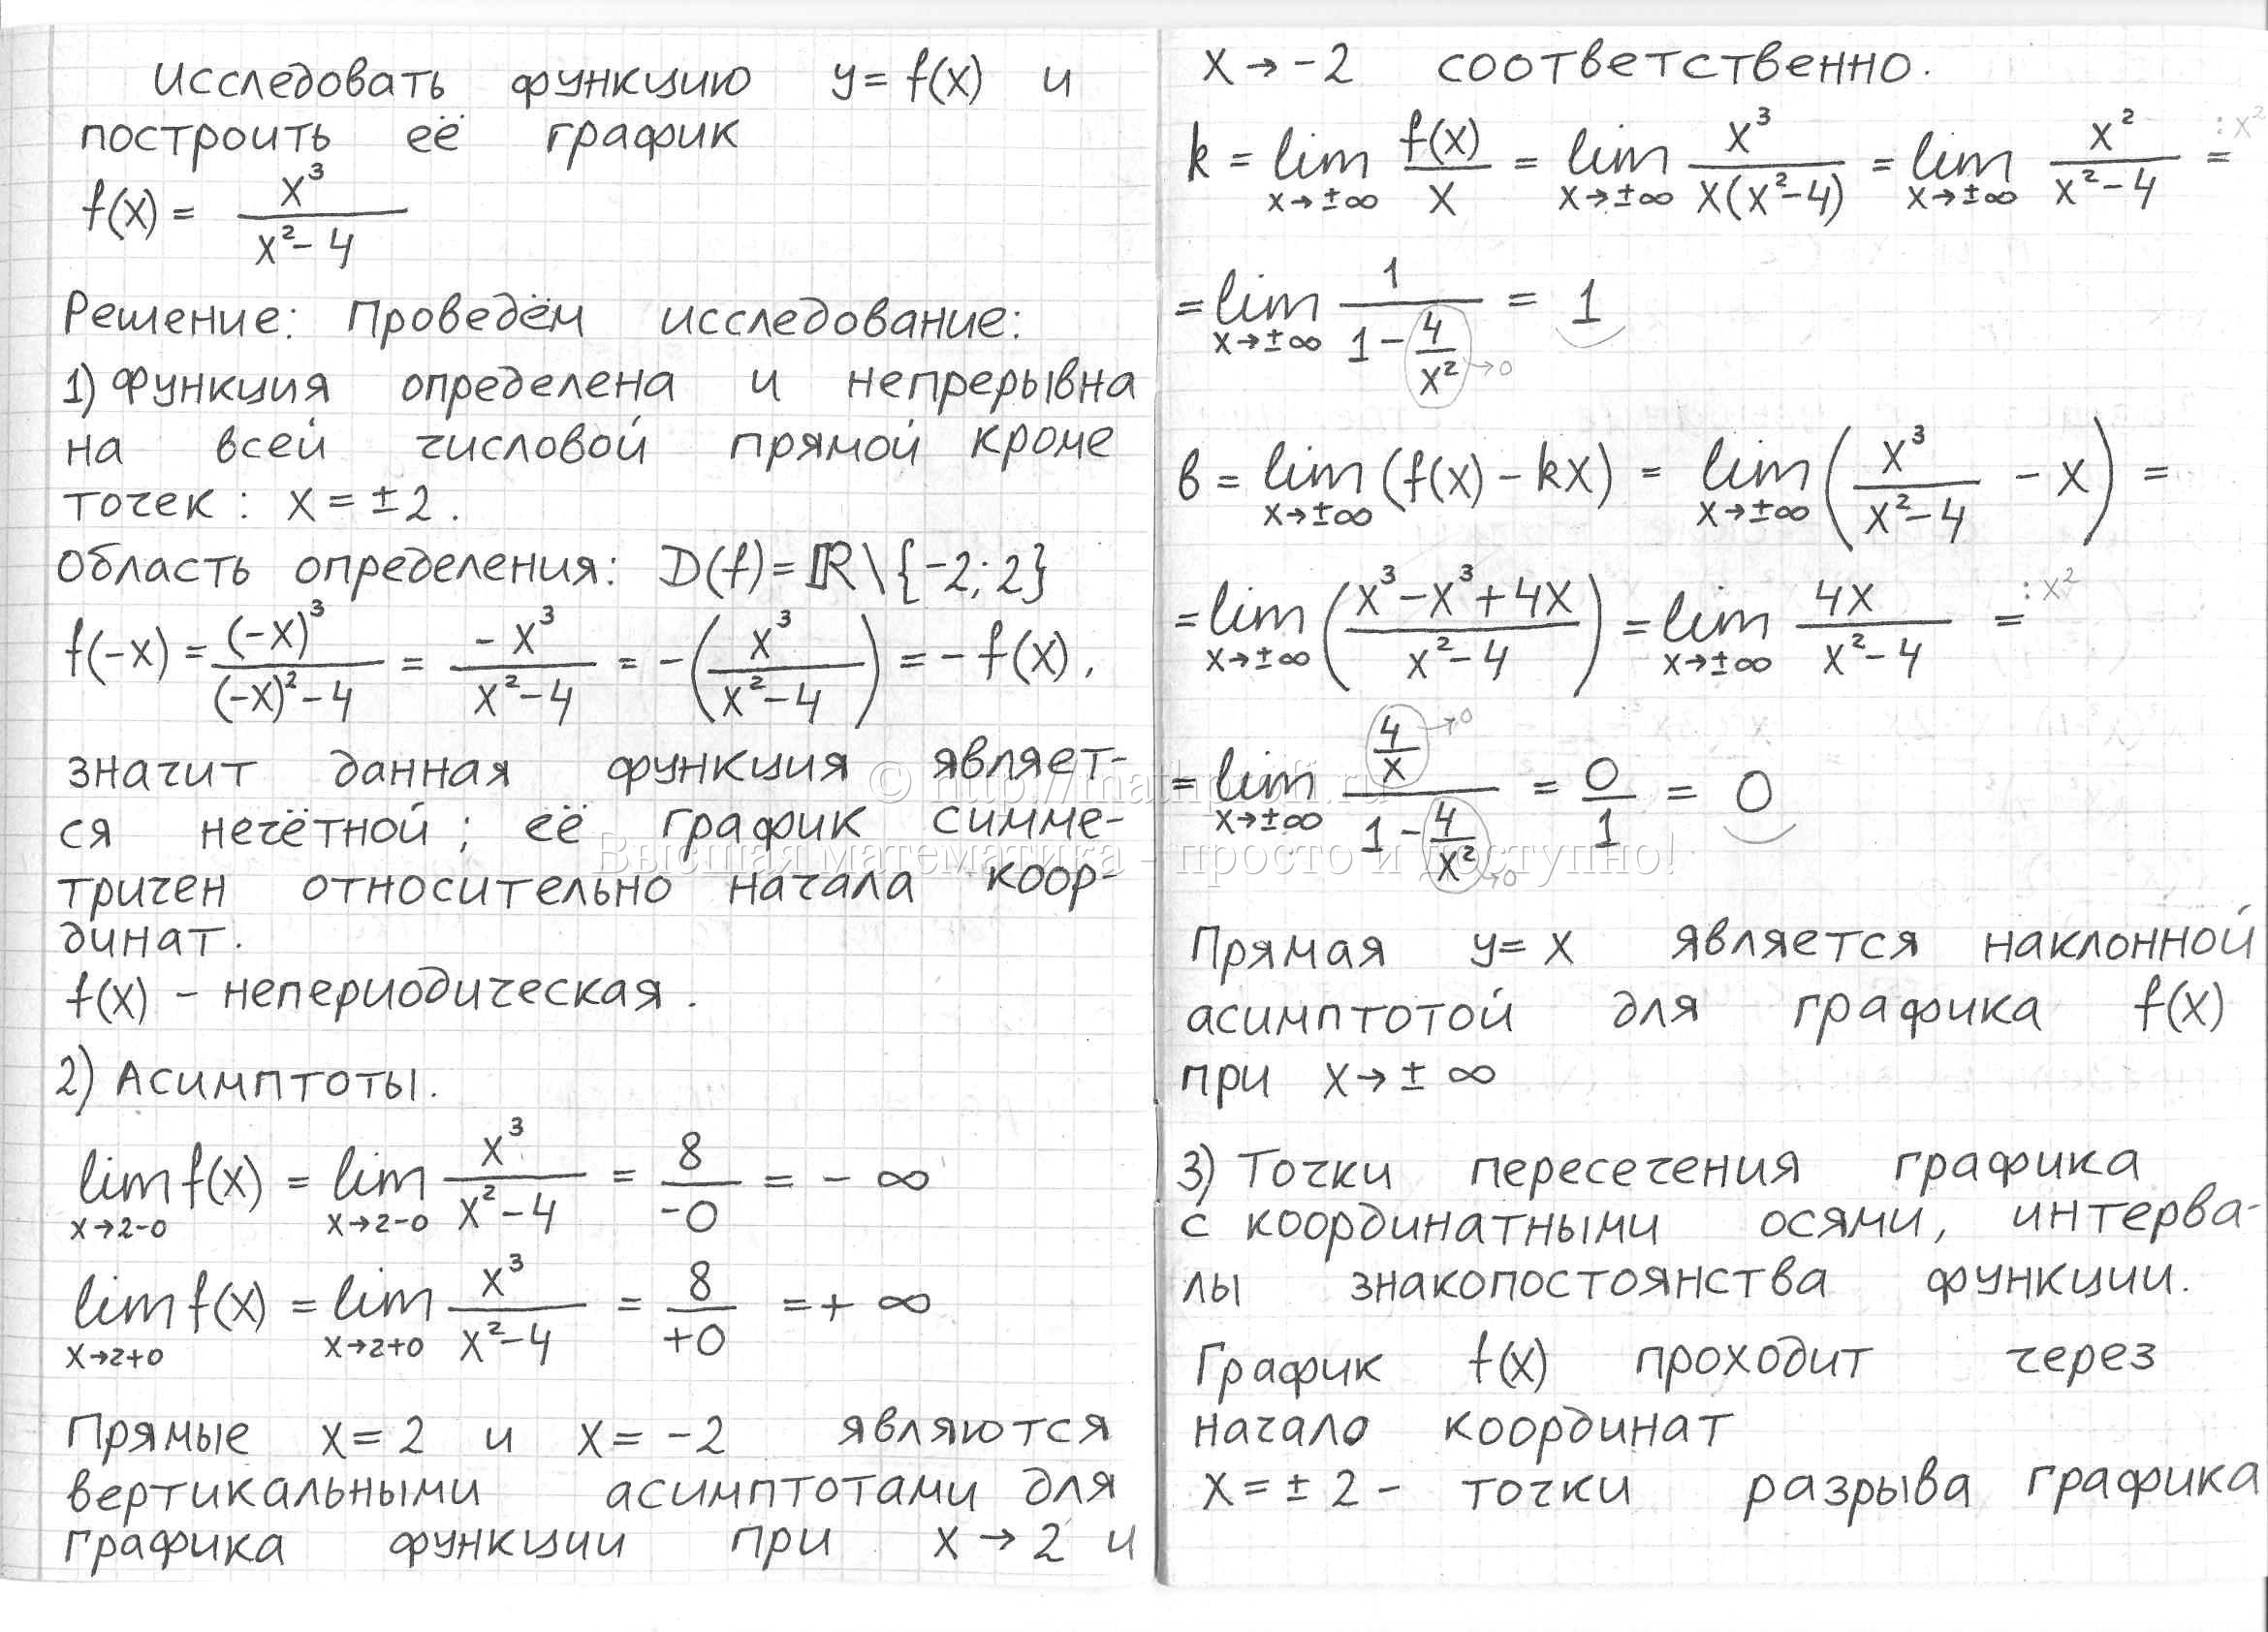 Исследовать функцию y = f(x) и
построить её график
f(x) = x³/(x² - 4)
Решение: Проведём исследование:
1) Функция определена и непрерывна
на всей числовой прямой кроме
точек: x = ±2.
Область определения: D(f) = ℝ\{-2; 2}
f(-x) = (-x)³/((-x)² - 4) = -x³/(x² - 4) = -(x³/(x² - 4)) = -f(x),
значит данная функция являет-
ся нечётной; её график симме-
тричен относительно начала коор-
динат.
f(x) - непериодическая.
2) Асимптоты.
lim x→2-0 f(x) = lim x→2-0 x³/(x² - 4) = 8/-0 = - ∞
lim x→2+0 f(x) = lim x→2+0 x³/(x² - 4) = 8/+0 = + ∞
Прямые x = 2 и x = -2 являются
вертикальными асимптотами для
графика функции при x → 2 и
x → -2 соответственно.
k = lim x→±∞ f(x)/x = lim x→±∞ x³/(x(x² - 4)) = lim x→±∞ x²/(x² - 4) = :x²
= lim x→±∞ 1/(1 - 4/x²) →0 = 1
b = lim x→±∞ (f(x) - kx) = lim x→±∞ (x³/(x² - 4) - x) =
= lim x→±∞ ((x³ - x³ + 4x)/(x² - 4)) = lim x→±∞ 4x/(x² - 4) = :x²
= lim x→±∞ (4/x →0)/(1 - 4/x² →0) = 0/1 = 0
Прямая y = x является наклонной
асимптотой для графика f(x)
при x → ± ∞
3) Точки пересечения графика
с координатными осями, интерва-
лы знакопостоянства функции.
График f(x) проходит через
начало координат
x = ± 2 - точки разрыва графика
© http://mathprofi.ru
Высшая математика - просто и доступно!